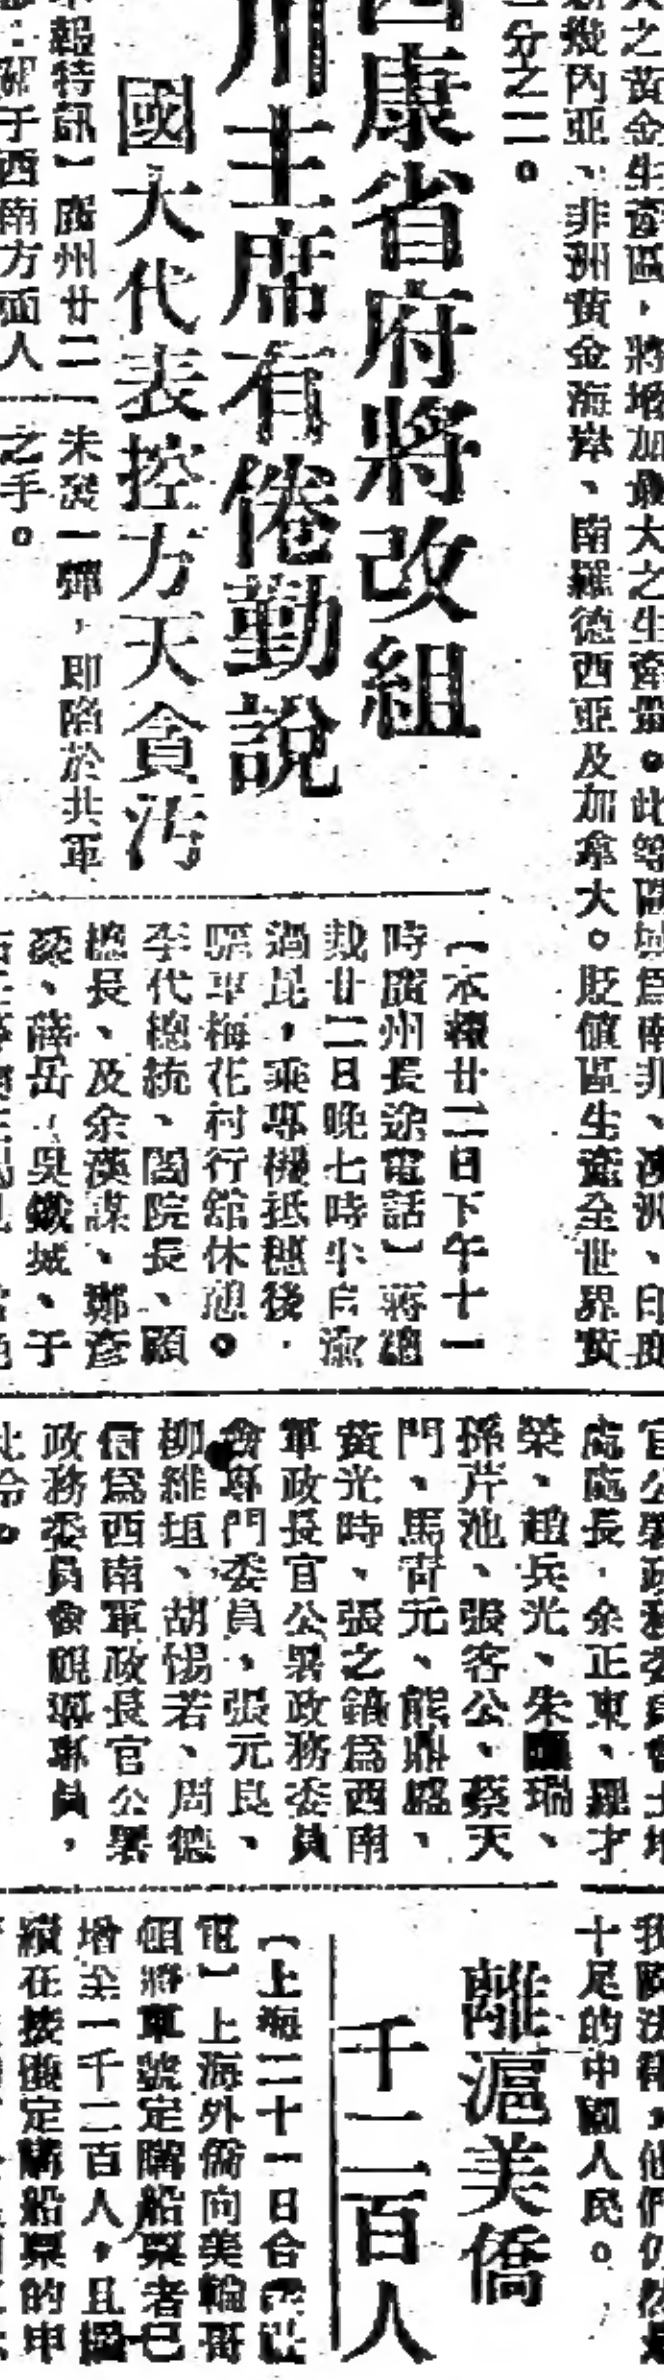 之黃金生產區，將增加最大之生產量。此等區域為南非、澳洲、印度
幾內亞、非洲黃金海岸、南羅德西亞及加拿大。貶值區生產全世界黃
分之二。
康省府將改組
川主席有倦勤說
國大代表控方天貪污
報特訊】廣州廿二
于西南方面人
未發一彈，即陷於共軍
之手。
【本報廿二日下午十一
時廣州長途電話】蔣總
裁廿二日晚七時半自渝
過昆，乘專機抵穗後，
驅車梅花村行館休憩。
李代總統、閻院長、顧
總長、及余漢謀、鄭彥
棻、薛岳、吳鐵城、于
處處長，余正東、羅才
榮、趙兵光、朱瑞、
孫芹池、張客公、蔡天
門、馬元、熊鼎盛、
黃光時、張之鎬為西南
軍政長官公署政務委員
會專門委員、張元良、
柳維垣、胡惕若、周德
信為西南軍政長官公署
政務委員會視導專員，
此令。
十足的中國人民。
離滬美僑
千二百人
【上海二十一日合眾社
電】上海外僑向美輪哥
頓將軍號定購船票者已
增至一千二百人，且繼
續在接獲定購船票的申